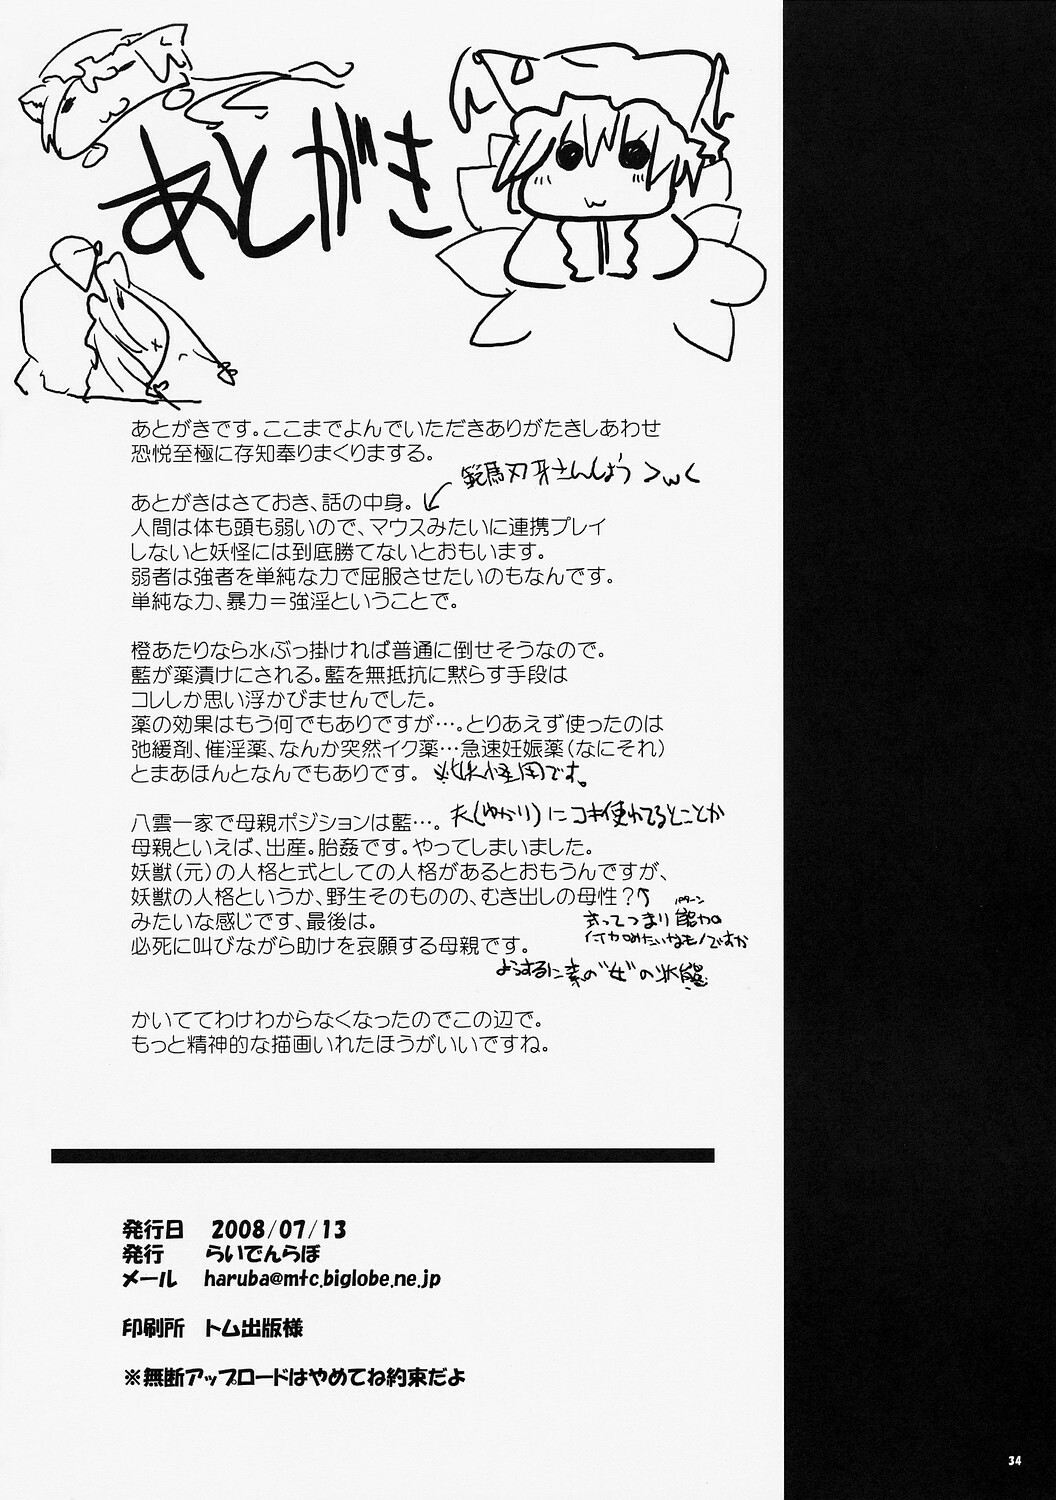 あとがき
あとがきです。ここまでよんでいただきありがたきしあわせ
恐悦至極に存知奉りまくりまする。
範馬刃牙さんしょう ＞ω＜
あとがきはさておき、話の中身。
人間は体も頭も弱いので、マウスみたいに連携プレイ
しないと妖怪には到底勝てないとおもいます。
弱者は強者を単純な力で屈服させたいのもなんです。
単純な力、暴力＝強淫ということで。
橙あたりなら水ぶっ掛ければ普通に倒せそうなので。
藍が薬漬けにされる。藍を無抵抗に黙らす手段は
コレしか思い浮かびませんでした。
薬の効果はもう何でもありですが…。とりあえず使ったのは
弛緩剤、催淫薬、なんか突然イク薬…急速妊娠薬（なにそれ）
とまあほんとなんでもありです。 ※妖怪用です。
八雲一家で母親ポジションは藍…。 夫(ゆかり)にコキ使われてるとことか
母親といえば、出産。胎姦です。やってしまいました。
妖獣（元）の人格と式としての人格があるとおもうんですが、
妖獣の人格というか、野生そのものの、むき出しの母性？
パターン
みたいな感じです、最後は。 式ってつまり能力の
付加みたいなモノですか
必死に叫びながら助けを哀願する母親です。
ようするに素の"女"の状態
かいててわけわからなくなったのでこの辺で。
もっと精神的な描画いれたほうがいいですね。
発行日 2008/07/13
発行 らいでんらぼ
メール haruba@mtc.biglobe.ne.jp
印刷所 トム出版様
※無断アップロードはやめてね約束だよ
34